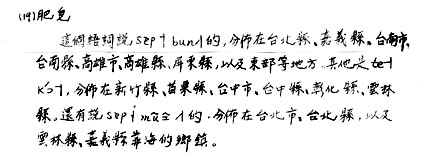 (19)肥皂
這個語詞說 sap˧ bun˧ 的,分佈在台北縣、嘉義縣、台南市、
台南縣、高雄市、高雄縣、屏東縣,以及東部等地方。其他是 te˧
k'ɔ˧,分佈在新竹縣、苗栗縣、台中市、台中縣、彰化縣、雲林
縣。還有說 sap˧ 的,分佈在台北市、台北縣,以及
雲林縣、嘉義縣靠海的鄉鎮。